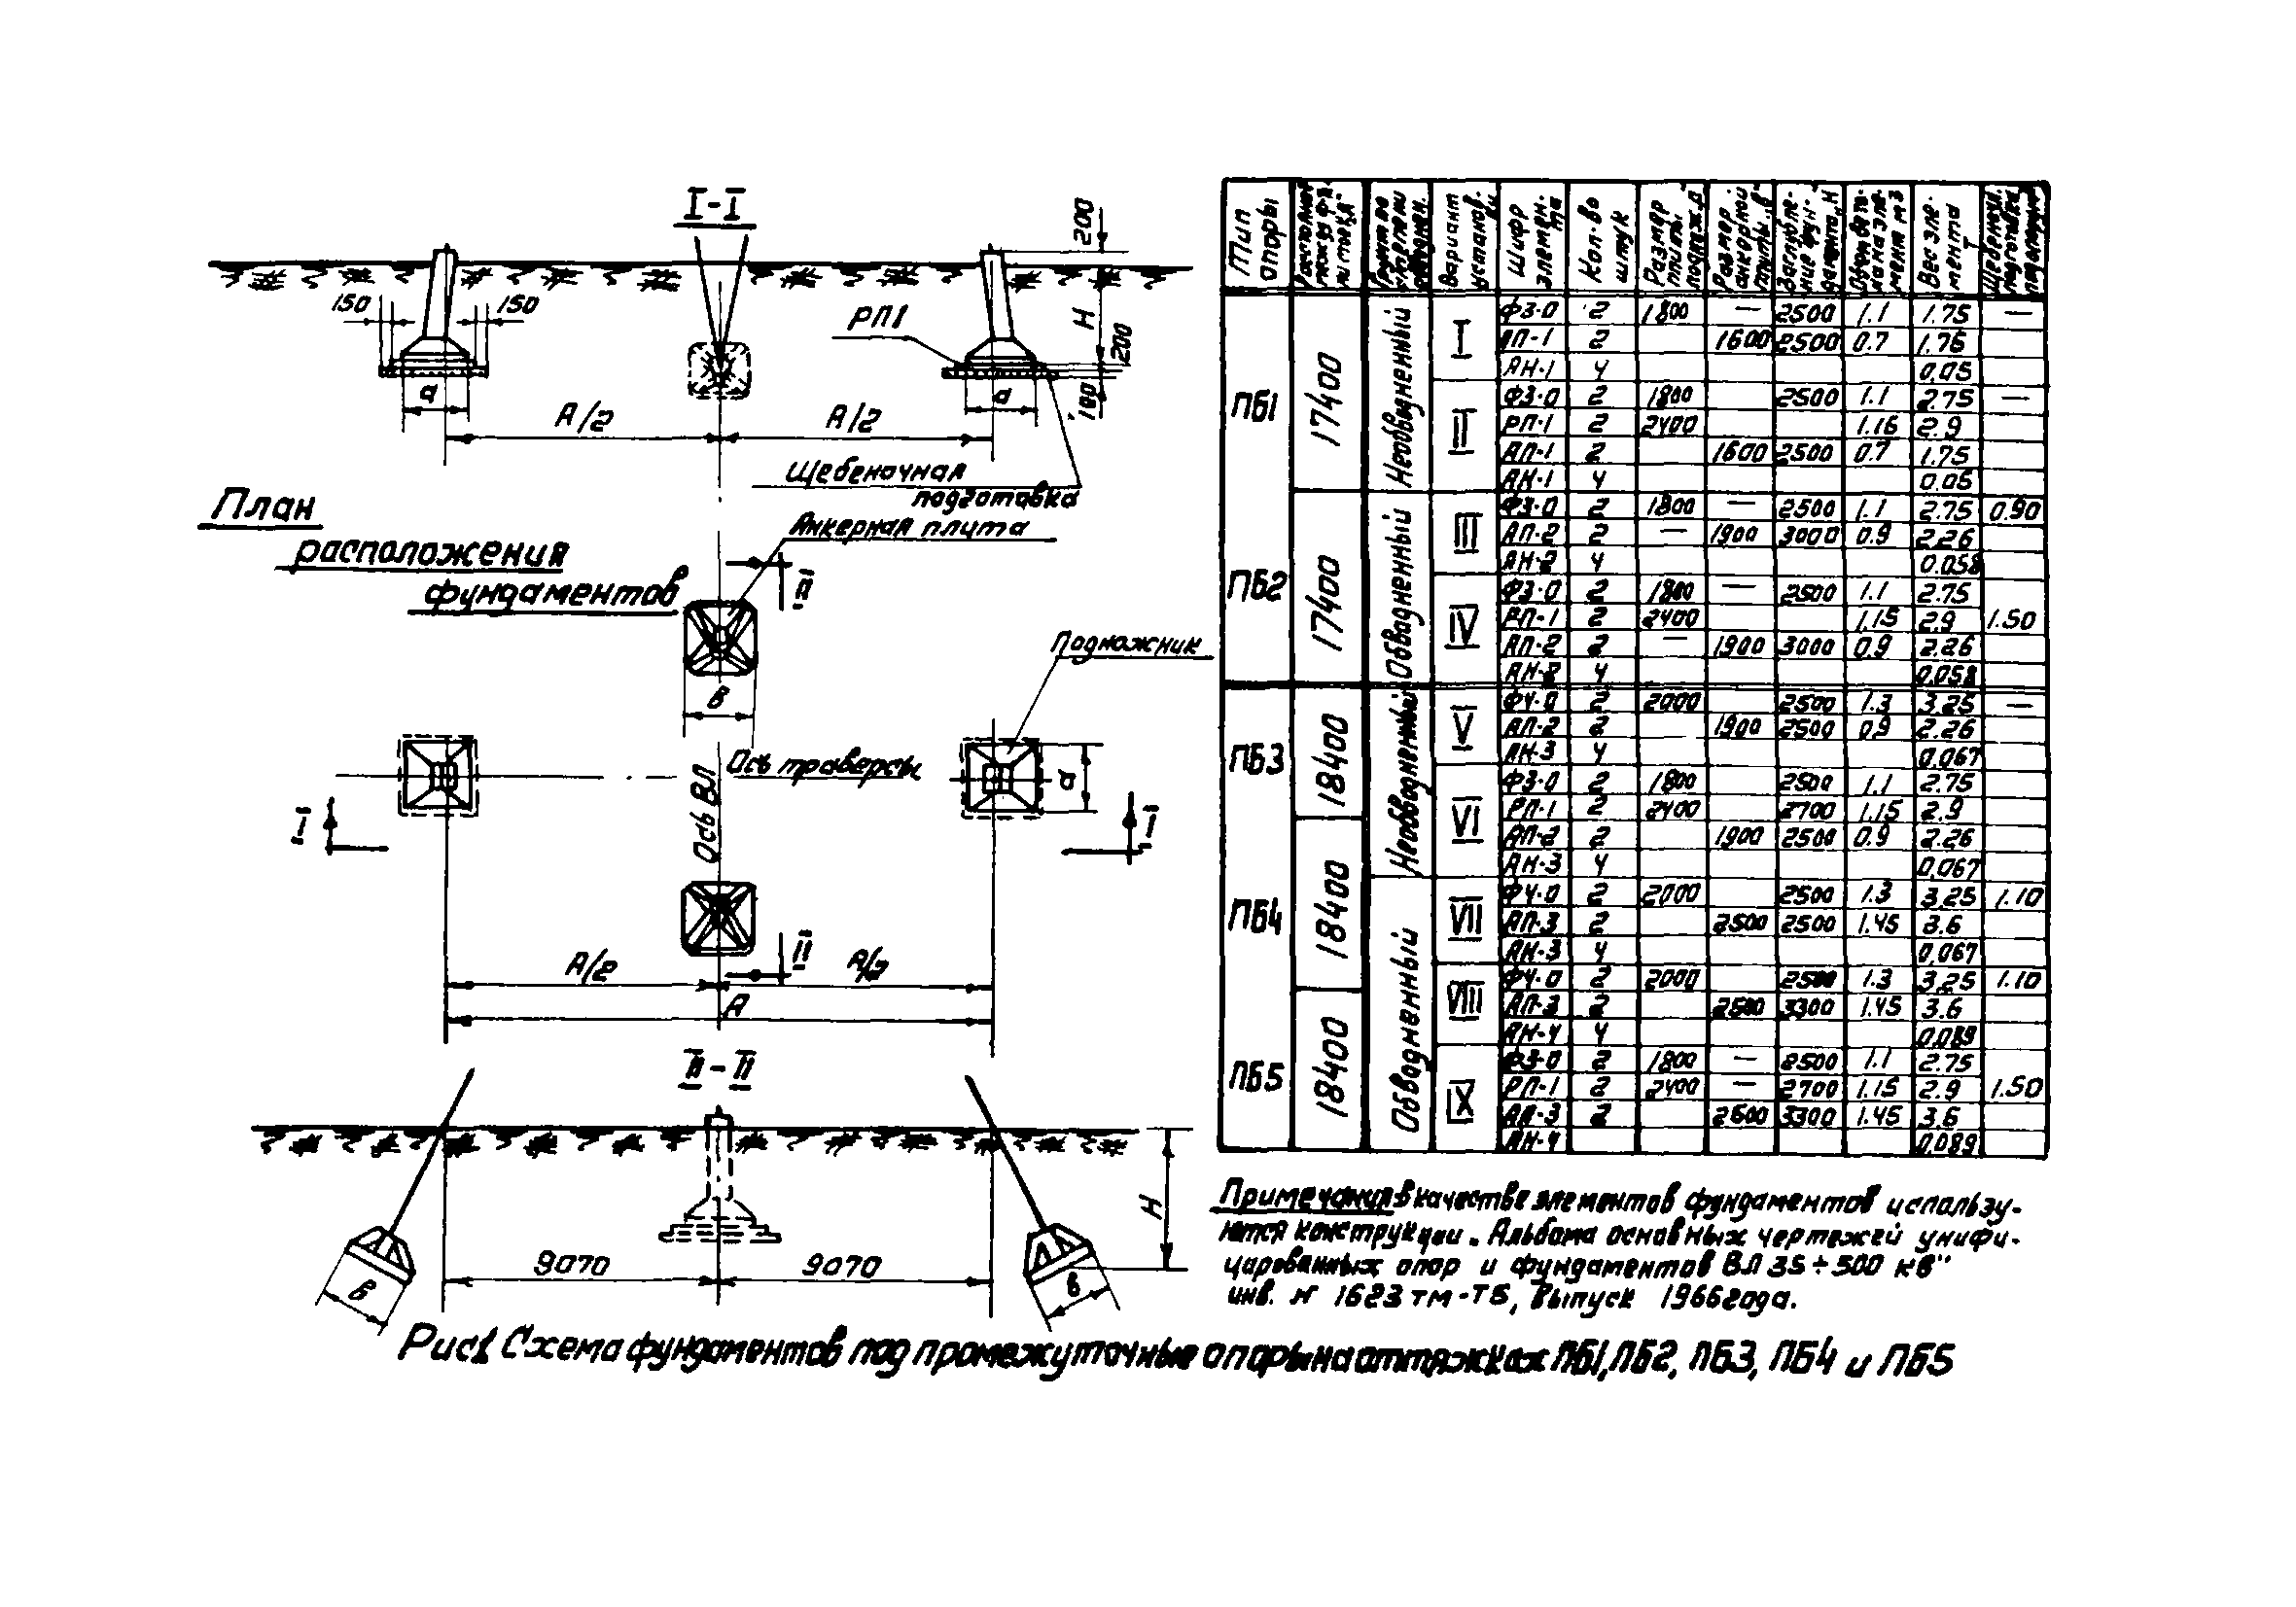 I-I
200
150
150
РП1
Н
200
100
а
а
А/2
А/2
Щебеночная
подготовка
План
расположения
фундаментов
Анкерная плита
II
Подножник
В
Ось траверсы
Ось ВЛ
а
I
I
II
А/2
А/2
А
II-II
Н
9070
9070
В
в
Тип опоры
Вариант
Шифр элемен-та
Кол-во штук
Размер плиты
Размер анкорной плиты „в"
Заглубле-ние фун-дамента „Н"
Вес эле-мента Т
ПБ1 17400 Необводненный
I Ф3-0 2 1800 — 2500 1.1 1.75 —
АП-1 2 1600 2500 0.7 1.76
АН-1 4 0,05
II Ф3-0 2 1800 2500 1.1 2.75 —
РП-1 2 2400 1.16 2.9
АП-1 2 1600 2500 0.7 1.75
АН-1 4 0.05
ПБ2 17400 Обводненный
III Ф3-0 2 1800 — 2500 1.1 2.75 0.90
АП-2 2 — 1900 3000 0.9 2.26
АН-2 4 0.058
IV Ф3-0 2 1800 — 2500 1.1 2.75
РП-1 2 2400 1.15 2.9 1.50
АП-2 2 — 1900 3000 0.9 2.26
АН-2 4 0,058
ПБ3 18400 Необводненный
V Ф4-0 2 2000 2500 1.3 3.25 —
АП-2 2 1900 2500 0,9 2.26
АН-3 4 0,067
VI Ф3-0 2 1800 2500 1.1 2.75
РП-1 2 2400 2700 1.15 2.9
АП-2 2 1900 2500 0.9 2.26
АН-3 4 0,067
ПБ4 18400 Обводненный
VII Ф4-0 2 2000 2500 1.3 3,25 1.10
АП-3 2 2500 2500 1.45 3.6
АН-3 4 0,067
VIII Ф4-0 2 2000 2500 1.3 3,25 1.10
АП-3 2 2500 3300 1.45 3.6
АН-4 4 0,089
ПБ5 18400
IX Ф3-0 2 1800 — 2500 1.1 2.75
РП-1 2 2400 — 2700 1.15 2.9 1.50
АП-3 2 2600 3300 1.45 3.6
АН-4 0,089
Примечания: в качестве элементов фундаментов использу-
ются конструкции „Альбома основных чертежей унифи-
цированных опор и фундаментов ВЛ 35÷500 кв"
инв. № 1623 тм-Т5, Выпуск 1966 года.
Рис1 Схема фундаментов под промежуточные опоры на оттяжках ПБ1, ПБ2, ПБ3, ПБ4 и ПБ5